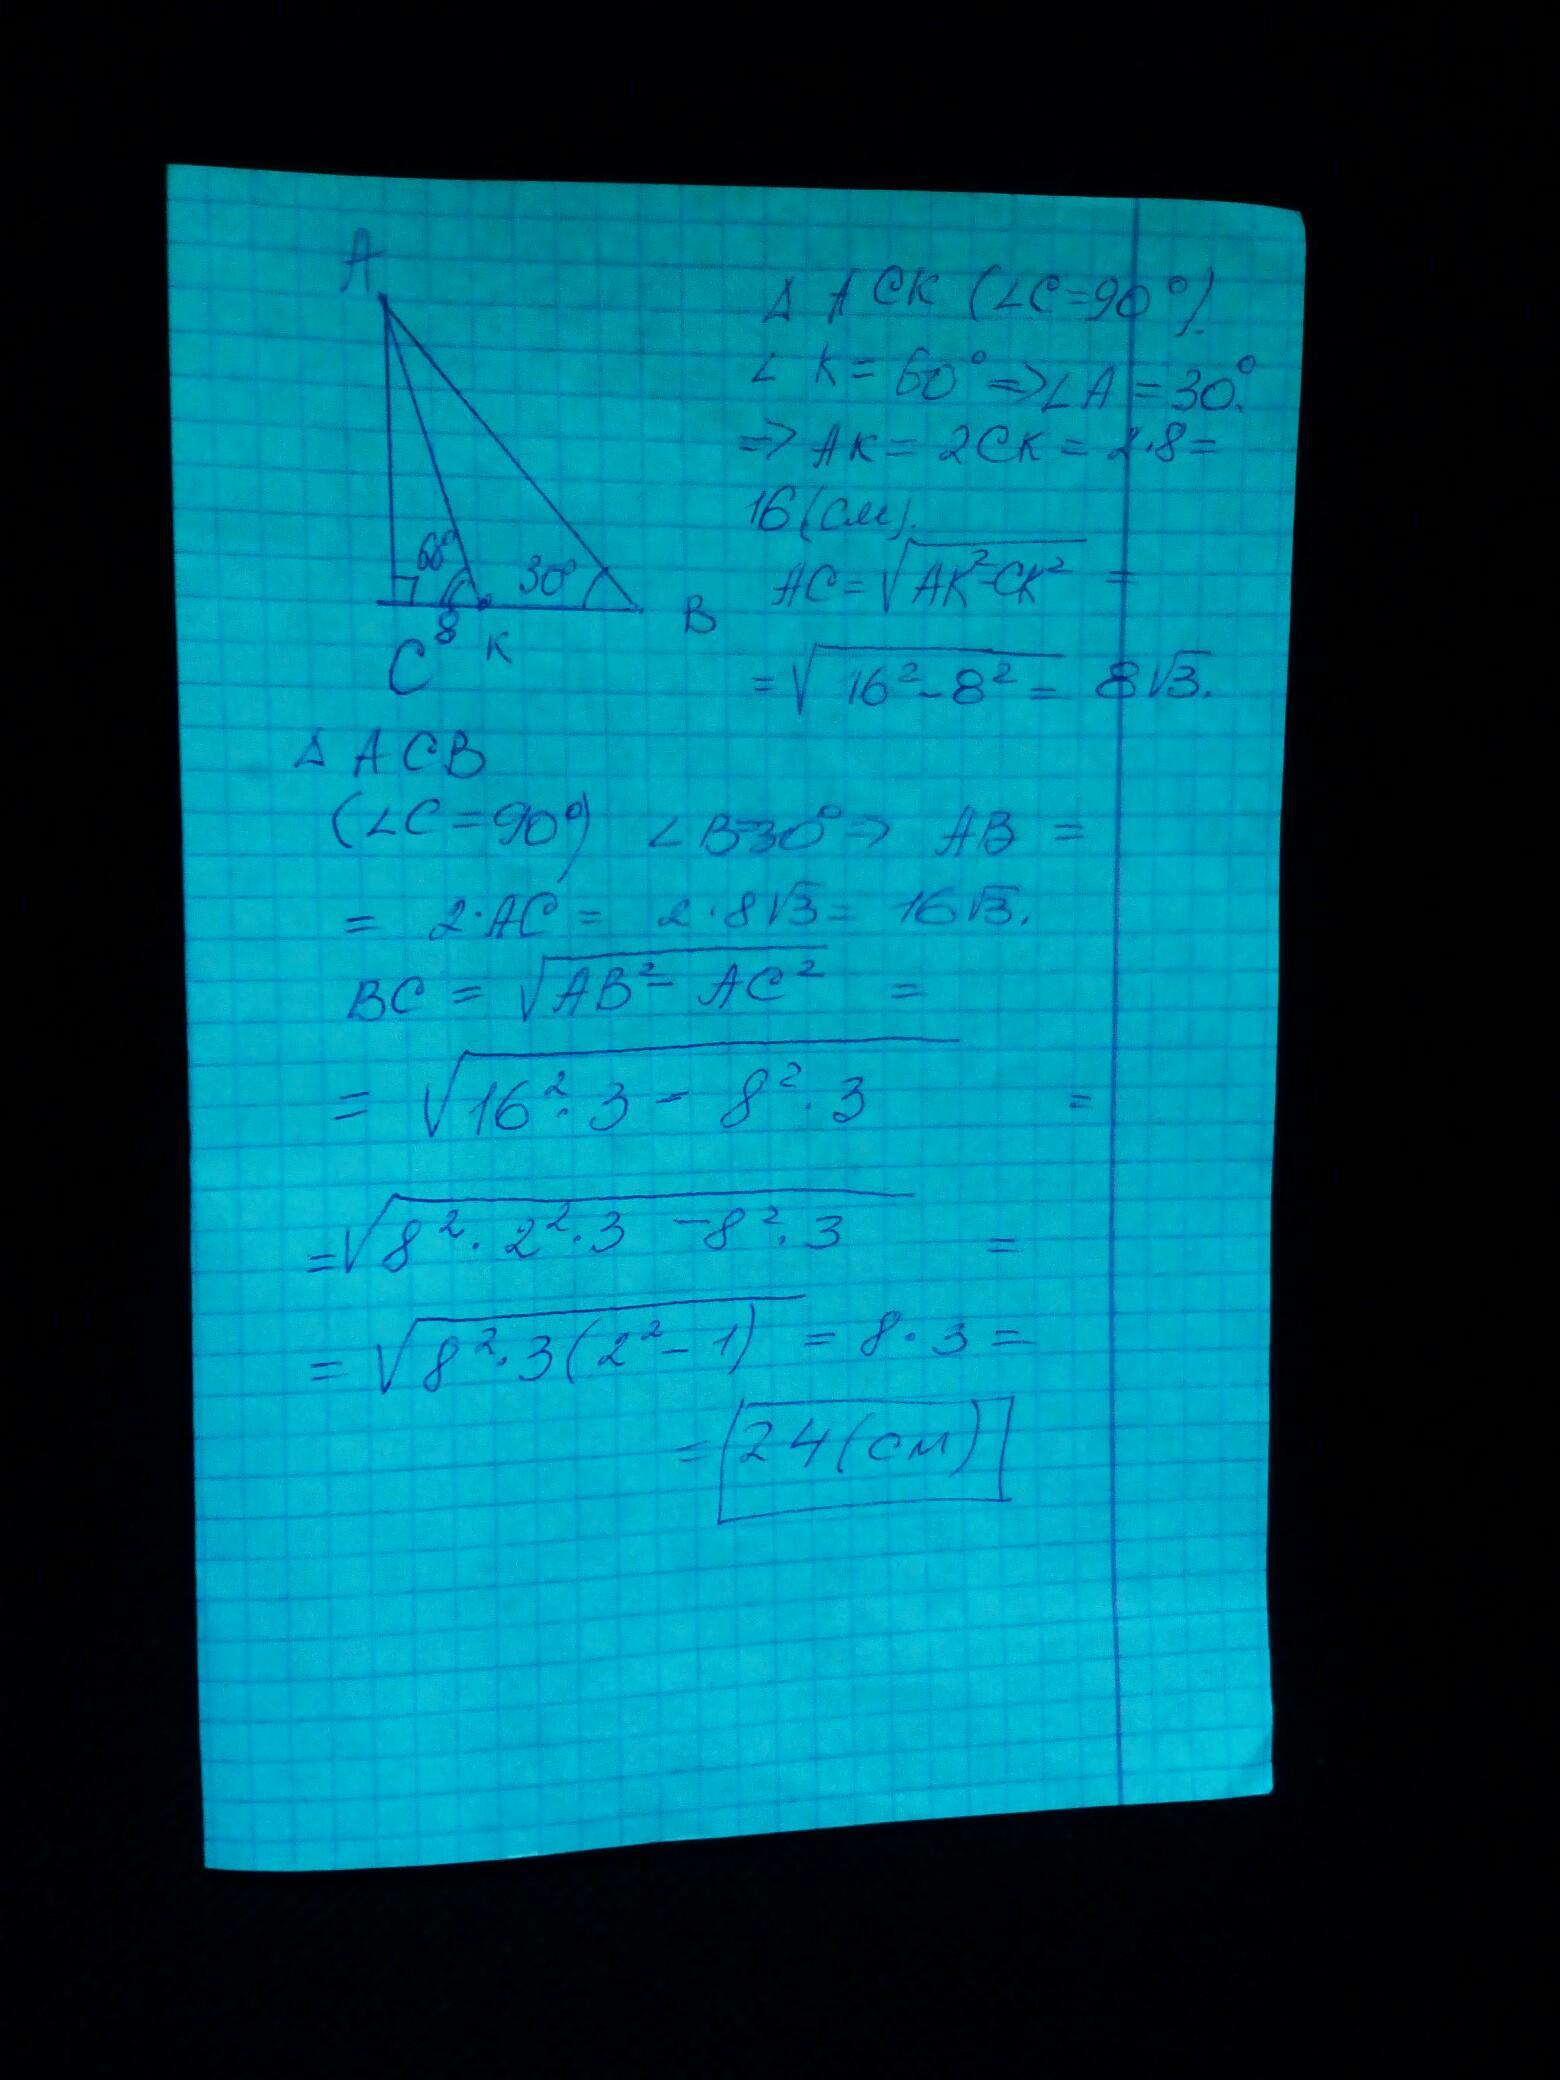 A
60°
30°
8
C
K
B
Δ ACK (∠C=90°).
∠ K = 60° => ∠A = 30°.
=> AK = 2CK = 2·8 =
16 (см).
AC = √AK²-CK² =
= √16² - 8² = 8√3.
Δ ACB
(∠C=90°) ∠B=30° => AB =
= 2·AC = 2·8√3 = 16√3.
BC = √AB² - AC² =
= √16²·3 - 8²·3 =
= √8²·2²·3 - 8²·3 =
= √8²·3(2²-1) = 8·3 =
= 24 (см)